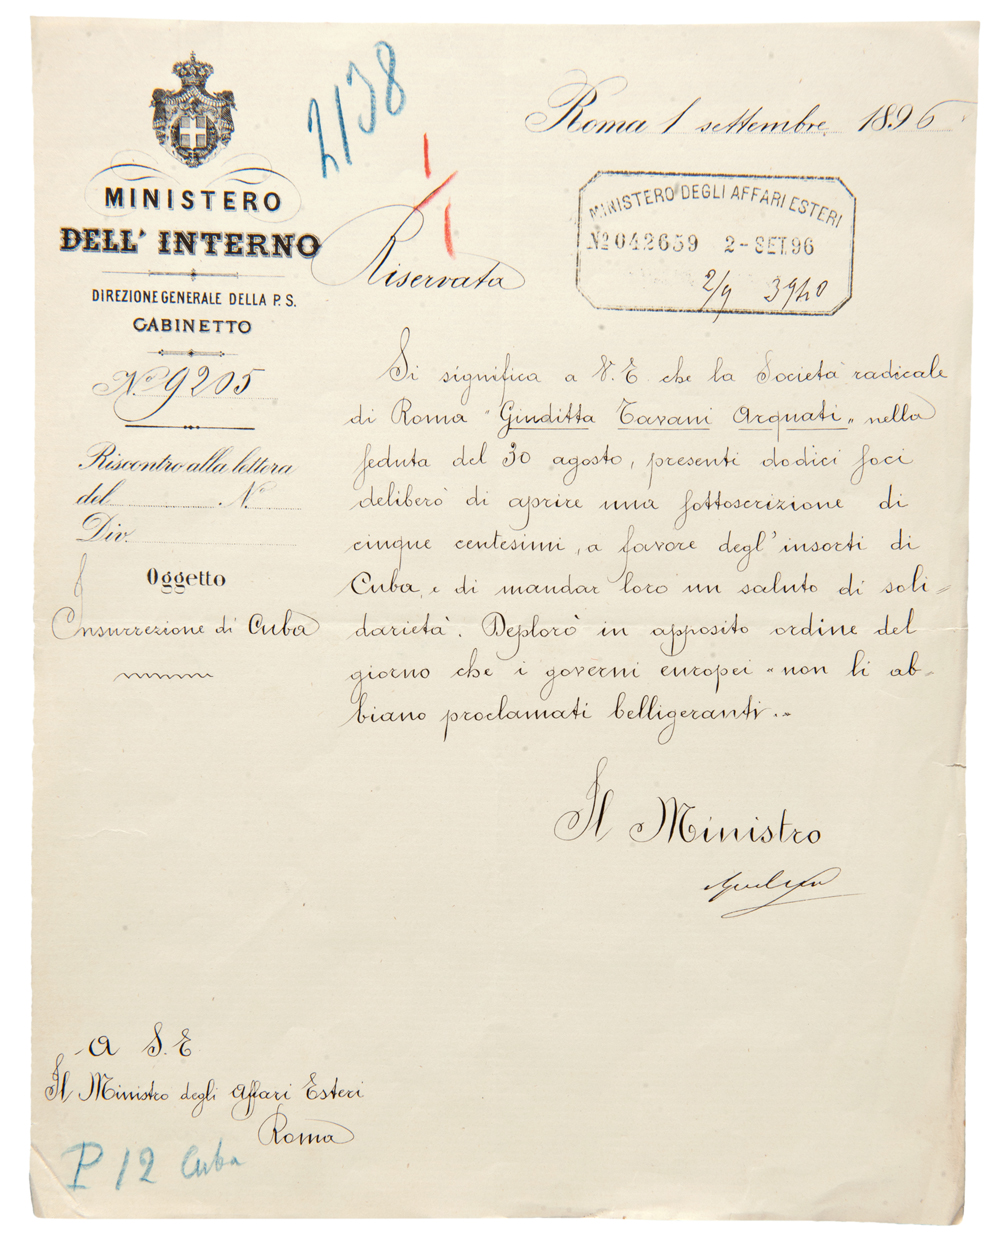 2138
Roma 1 settembre 1896
MINISTERO
DELL' INTERNO
DIREZIONE GENERALE DELLA P. S.
GABINETTO
N.º 9205
Riscontro alla lettera
del N.º
Div.
Oggetto
Insurrezione di Cuba
1/1
Riservata
MINISTERO DEGLI AFFARI ESTERI
Nº 042659 2-SET.96
2/9 3940
Si significa a V. E. che la Società radicale
di Roma "Giuditta Tavani Arquati" nella
seduta del 30 agosto, presenti dodici soci
deliberò di aprire una sottoscrizione di
cinque centesimi, a favore degl'insorti di
Cuba, e di mandar loro un saluto di soli=
darietà. Deplorò in apposito ordine del
giorno che i governi europei "non li ab=
biano proclamati belligeranti."
Il Ministro
A S. E.
Il Ministro degli Affari Esteri
Roma
P 12 Cuba